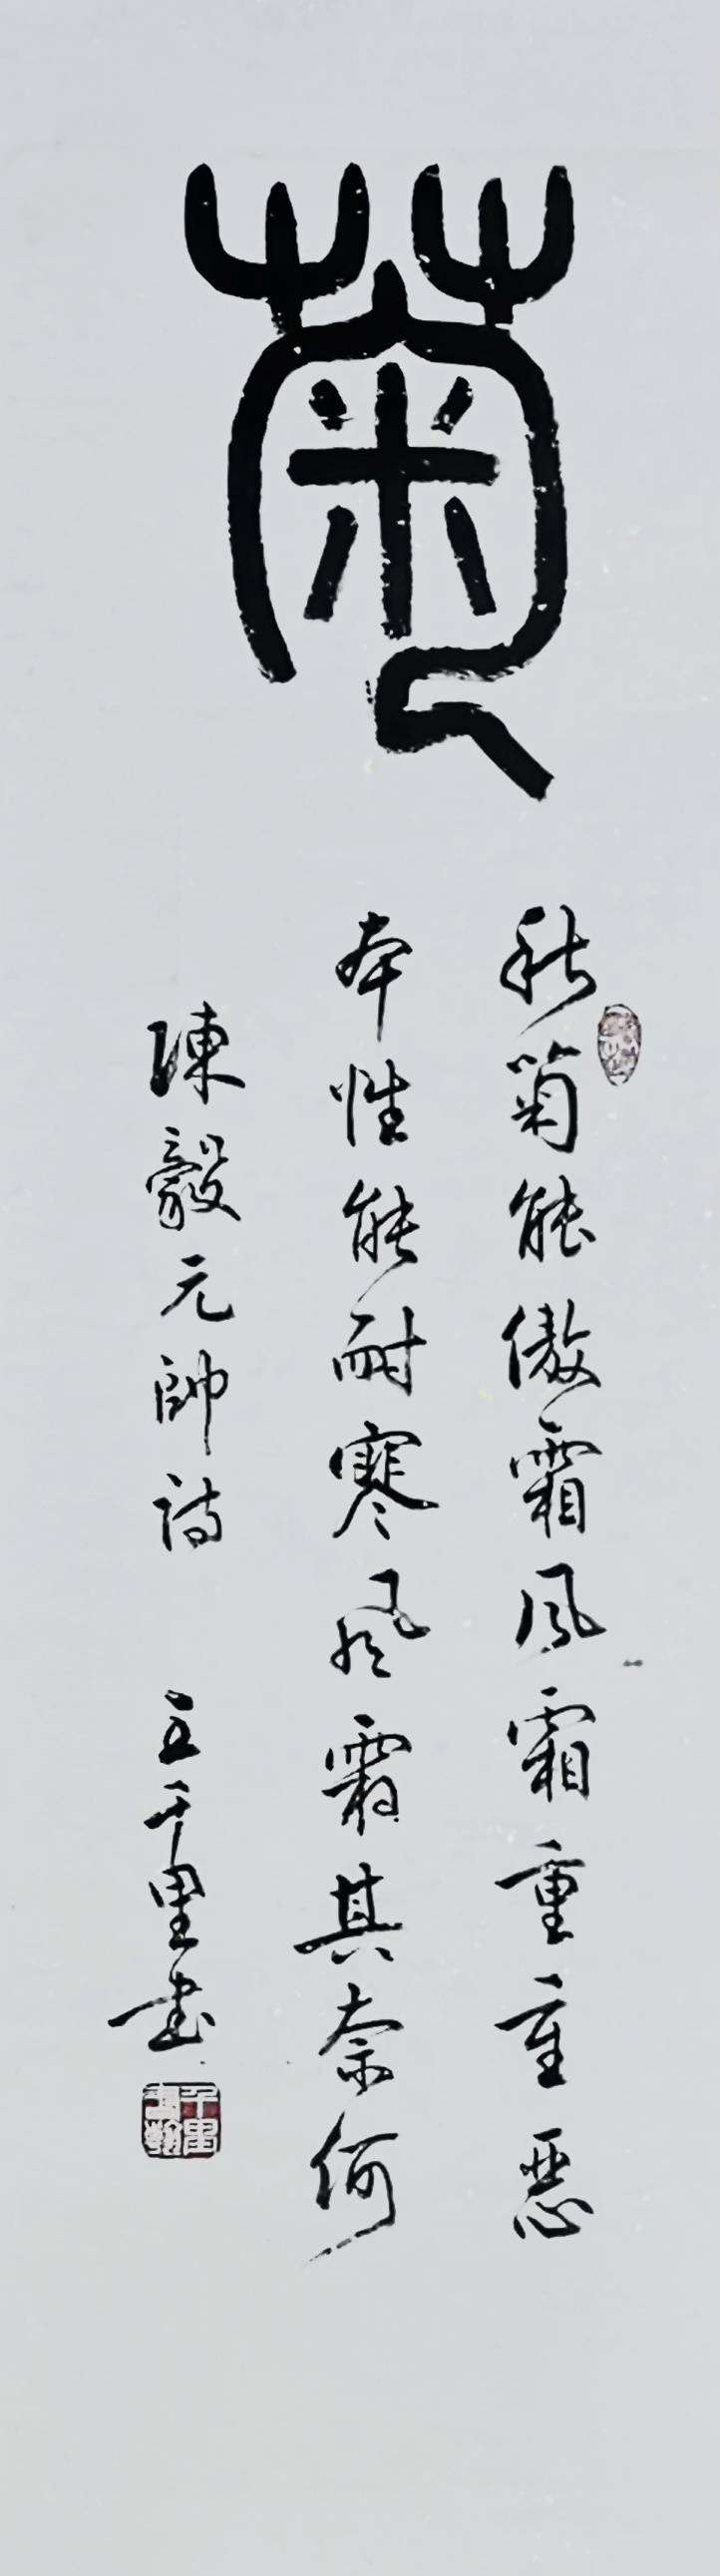 菊
秋菊能傲霜風霜重重惡
本性能耐寒風霜其奈何
陳毅元帥詩 王千里書